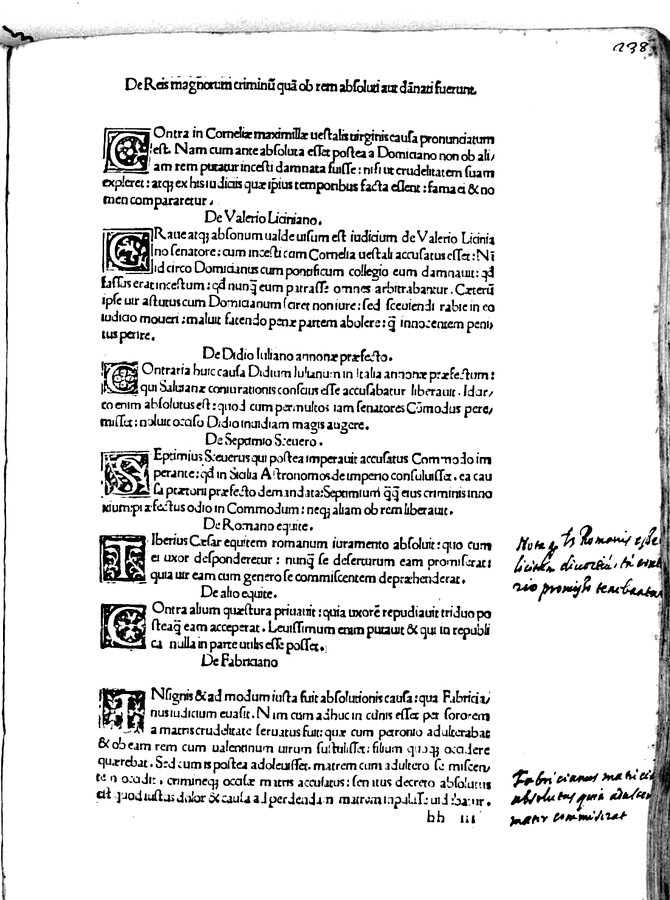 238
De Reis magnorum criminũ quã ob rem absoluti aut dãnati fuerunt.
Contra in Corneliæ maximillæ uestalis uirginis causa pronunciatum
est. Nam cum ante absoluta esset postea a Domiciano non ob ali/
am rem putatur incesti damnata fuisse: nisi ut crudelitatem suam
expleret: atq; ex his iudiciis quæ ipsius temporibus facta essent: fama ei & no
men compararetur.
De Valerio Liciniano.
CRaue atq; absonum ualde uisum est iudicium de Valerio Licinia
no senatore: cum incesti cum Cornelia uestali accusatus esset: Nĩ
id circo Domicianus cum pontificum collegio eum damnauit: qd
fassus erat incestum: qd nunq̃ eum patrasse omnes arbitrabantur. Cæterũ
ipse uir astutus cum Domicianum sciret non iure: sed sceuiendi rabie in eo
iudicio moueri: maluit fatendo penæ partem abolere: q̃ innocentem peni
tus perire.
De Didio Iuliano annonæ præfecto.
COntraria huic causa Didium Iulianum in Italia annonæ præfectum:
qui Saluianæ coniurationis conscius esse accusabatur liberauit. Idcir/
co enim absolutus est: quod cum permultos iam senatores Cõmodus pere/
misset: noluit occiso Didio inuidiam magis augere.
De Septimio Seuero.
SEptimius Seuerus qui postea imperauit accusatus Commodo im
perante: qd in Sicilia Astronomos de imperio consuluisset. ea cau
sa prætorii præfecto demandata: Septimium q̃q̃ eius criminis inno
xium: præfectus odio in Commodum: neq; aliam ob rem liberauit.
De Romano equite.
TIberius Cæsar equitem romanum iuramento absoluit: quo cum
ei uxor desponderetur: nunq̃ se deserturum eam promiserat:
quia uir eam cum genero se commiscentem depræhenderat.
De alio equite.
COntra alium quæstura priuauit: quia uxorẽ repudiauit triduo po
steaq̃ eam acceperat. Leuissimum enim putauit & qui in republi
ca nulla in parte utilis esse posset.
De Fabriciano
INsignis & ad modum iusta fuit absolutionis causa: qua Fabricia/
nus iudicium euasit. Nam cum adhuc in cunis esset per sororem
a matris crudelitate seruatus fuit: quæ cum petronio adulterabat
& ob eam rem cum ualentinum uirum sustulisset: filium quoq; occidere
quærebat. Sed cum is postea adoleuisset. matrem cum adultero se miscen/
tem occidit. crimineq; occisæ matris accusatus: senatus decreto absolutus
est quod iustus dolor & causa ad perdendam matrem impulisse uidebatur.
bb iii
Nota q Romanis esse
licitum diuortiũ
rio promisso tenebantur
Fabricianus matricid
absolutus quia adulter
mater commiserat